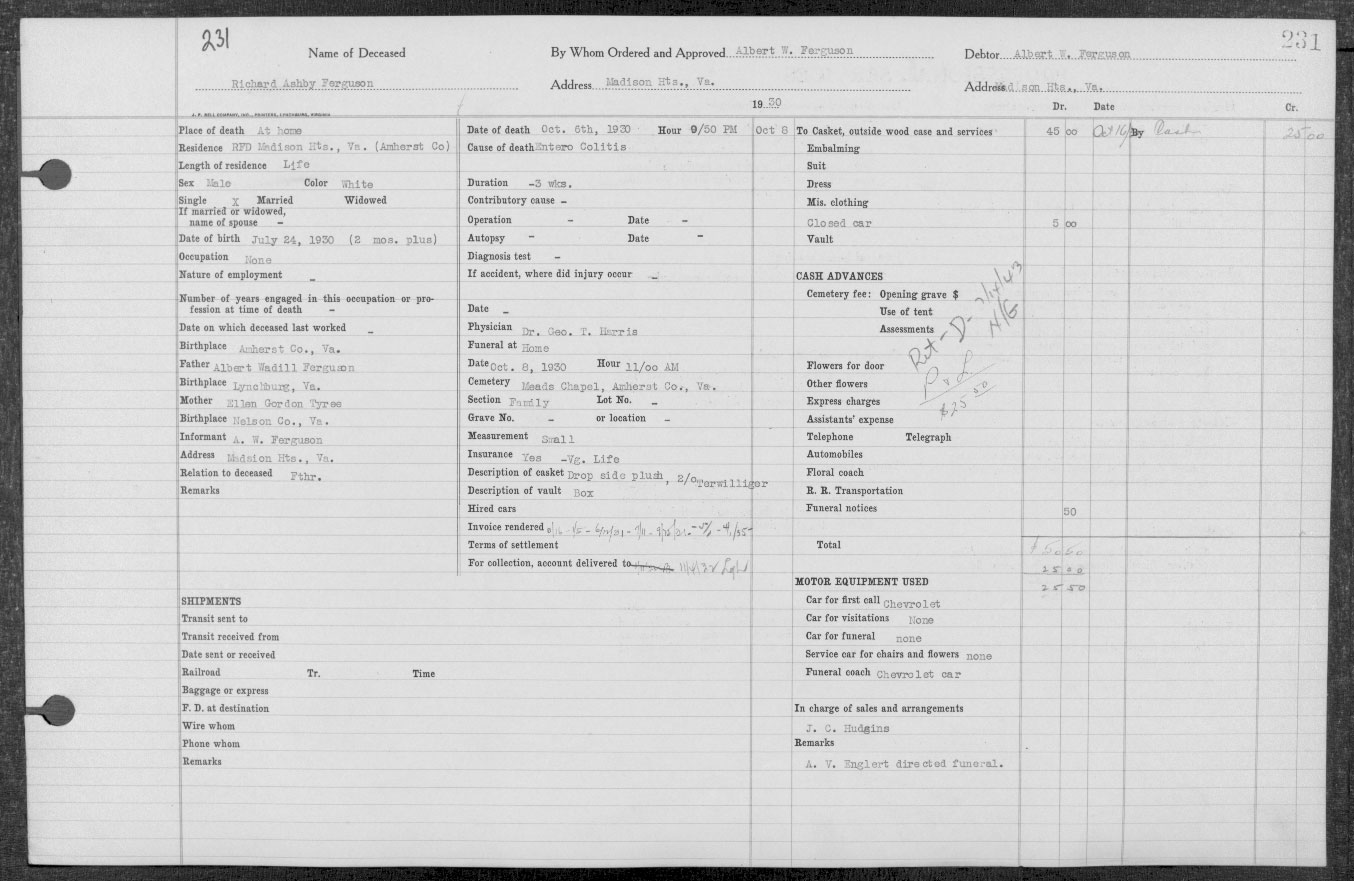 231
231
Name of Deceased
Richard Ashby Ferguson
By Whom Ordered and Approved Albert W. Ferguson
Address Madison Hts., Va.
Debtor Albert W. Ferguson
Address Madison Hts., Va.
1930
Dr. Date Cr.
J. P. BELL COMPANY, INC., PRINTERS, LYNCHBURG, VIRGINIA
Place of death At home
Residence RFD Madison Hts., Va. (Amherst Co)
Length of residence Life
Sex Male Color White
Single X Married Widowed
If married or widowed,
name of spouse -
Date of birth July 24, 1930 (2 mos. plus)
Occupation None
Nature of employment -
Number of years engaged in this occupation or pro-
fession at time of death -
Date on which deceased last worked -
Birthplace Amherst Co., Va.
Father Albert Wadill Ferguson
Birthplace Lynchburg, Va.
Mother Ellen Gordon Tyree
Birthplace Nelson Co., Va.
Informant A. W. Ferguson
Address Madsion Hts., Va.
Relation to deceased Fthr.
Remarks
SHIPMENTS
Transit sent to
Transit received from
Date sent or received
Railroad Tr. Time
Baggage or express
F. D. at destination
Wire whom
Phone whom
Remarks
Date of death Oct. 6th, 1930 Hour 9/50 PM
Cause of death Entero Colitis
Duration -3 wks.
Contributory cause -
Operation - Date -
Autopsy - Date -
Diagnosis test -
If accident, where did injury occur -
Date -
Physician Dr. Geo. T. Harris
Funeral at Home
Date Oct. 8, 1930 Hour 11/00 AM
Cemetery Meads Chapel, Amherst Co., Va.
Section Family Lot No. -
Grave No. - or location -
Measurement Small
Insurance Yes -Vg. Life
Description of casket Drop side plush, 2/0 Terwilliger
Description of vault Box
Hired cars
Invoice rendered
Terms of settlement
For collection, account delivered to 11/4/32
Oct 8 To Casket, outside wood case and services 45 00 Oct 16/ By Cash 25 00
Embalming
Suit
Dress
Mis. clothing
Closed car 5 00
Vault
CASH ADVANCES
Cemetery fee: Opening grave $
Use of tent
Assessments
Ret-D- 2/14/43
H/G
P & L
$25 50
Flowers for door
Other flowers
Express charges
Assistants' expense
Telephone Telegraph
Automobiles
Floral coach
R. R. Transportation
Funeral notices 50
Total $50 50
25 00
25 50
MOTOR EQUIPMENT USED
Car for first call Chevrolet
Car for visitations None
Car for funeral none
Service car for chairs and flowers none
Funeral coach Chevrolet car
In charge of sales and arrangements
J. C. Hudgins
Remarks
A. V. Englert directed funeral.